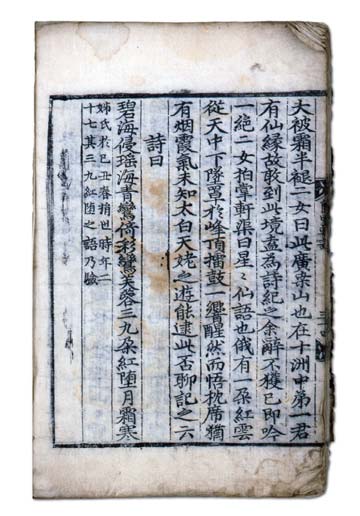 大被霜半褪二女曰此廣桒山也在十洲中第一君
有仙緣故敢到此境盍為詩紀之余辭不獲已即吟
一絕二女拍掌軒渠曰星〻仙語也俄有一朶紅雲
從天中下墜罥於峰頂擂鼓一響醒然而悟枕席猶
有烟霞氣未知太白天姥之遊能逮此否聊記之云
詩曰
碧海侵瑤海青鸞倚彩鸞芙蓉三九朶紅堕月霜寒
姊氏於己丑春捐世時年二
十七其三九紅堕之語乃驗